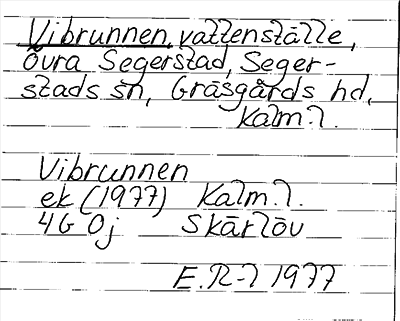 Vibrunnen, vattenställe,
Övra Segerstad, Seger-
stads sn, Gräsgårds hd,
Kalm.l.
Vibrunnen
ek (1977) Kalm.l.
4G Oj Skärlöv
E.R-l 1977